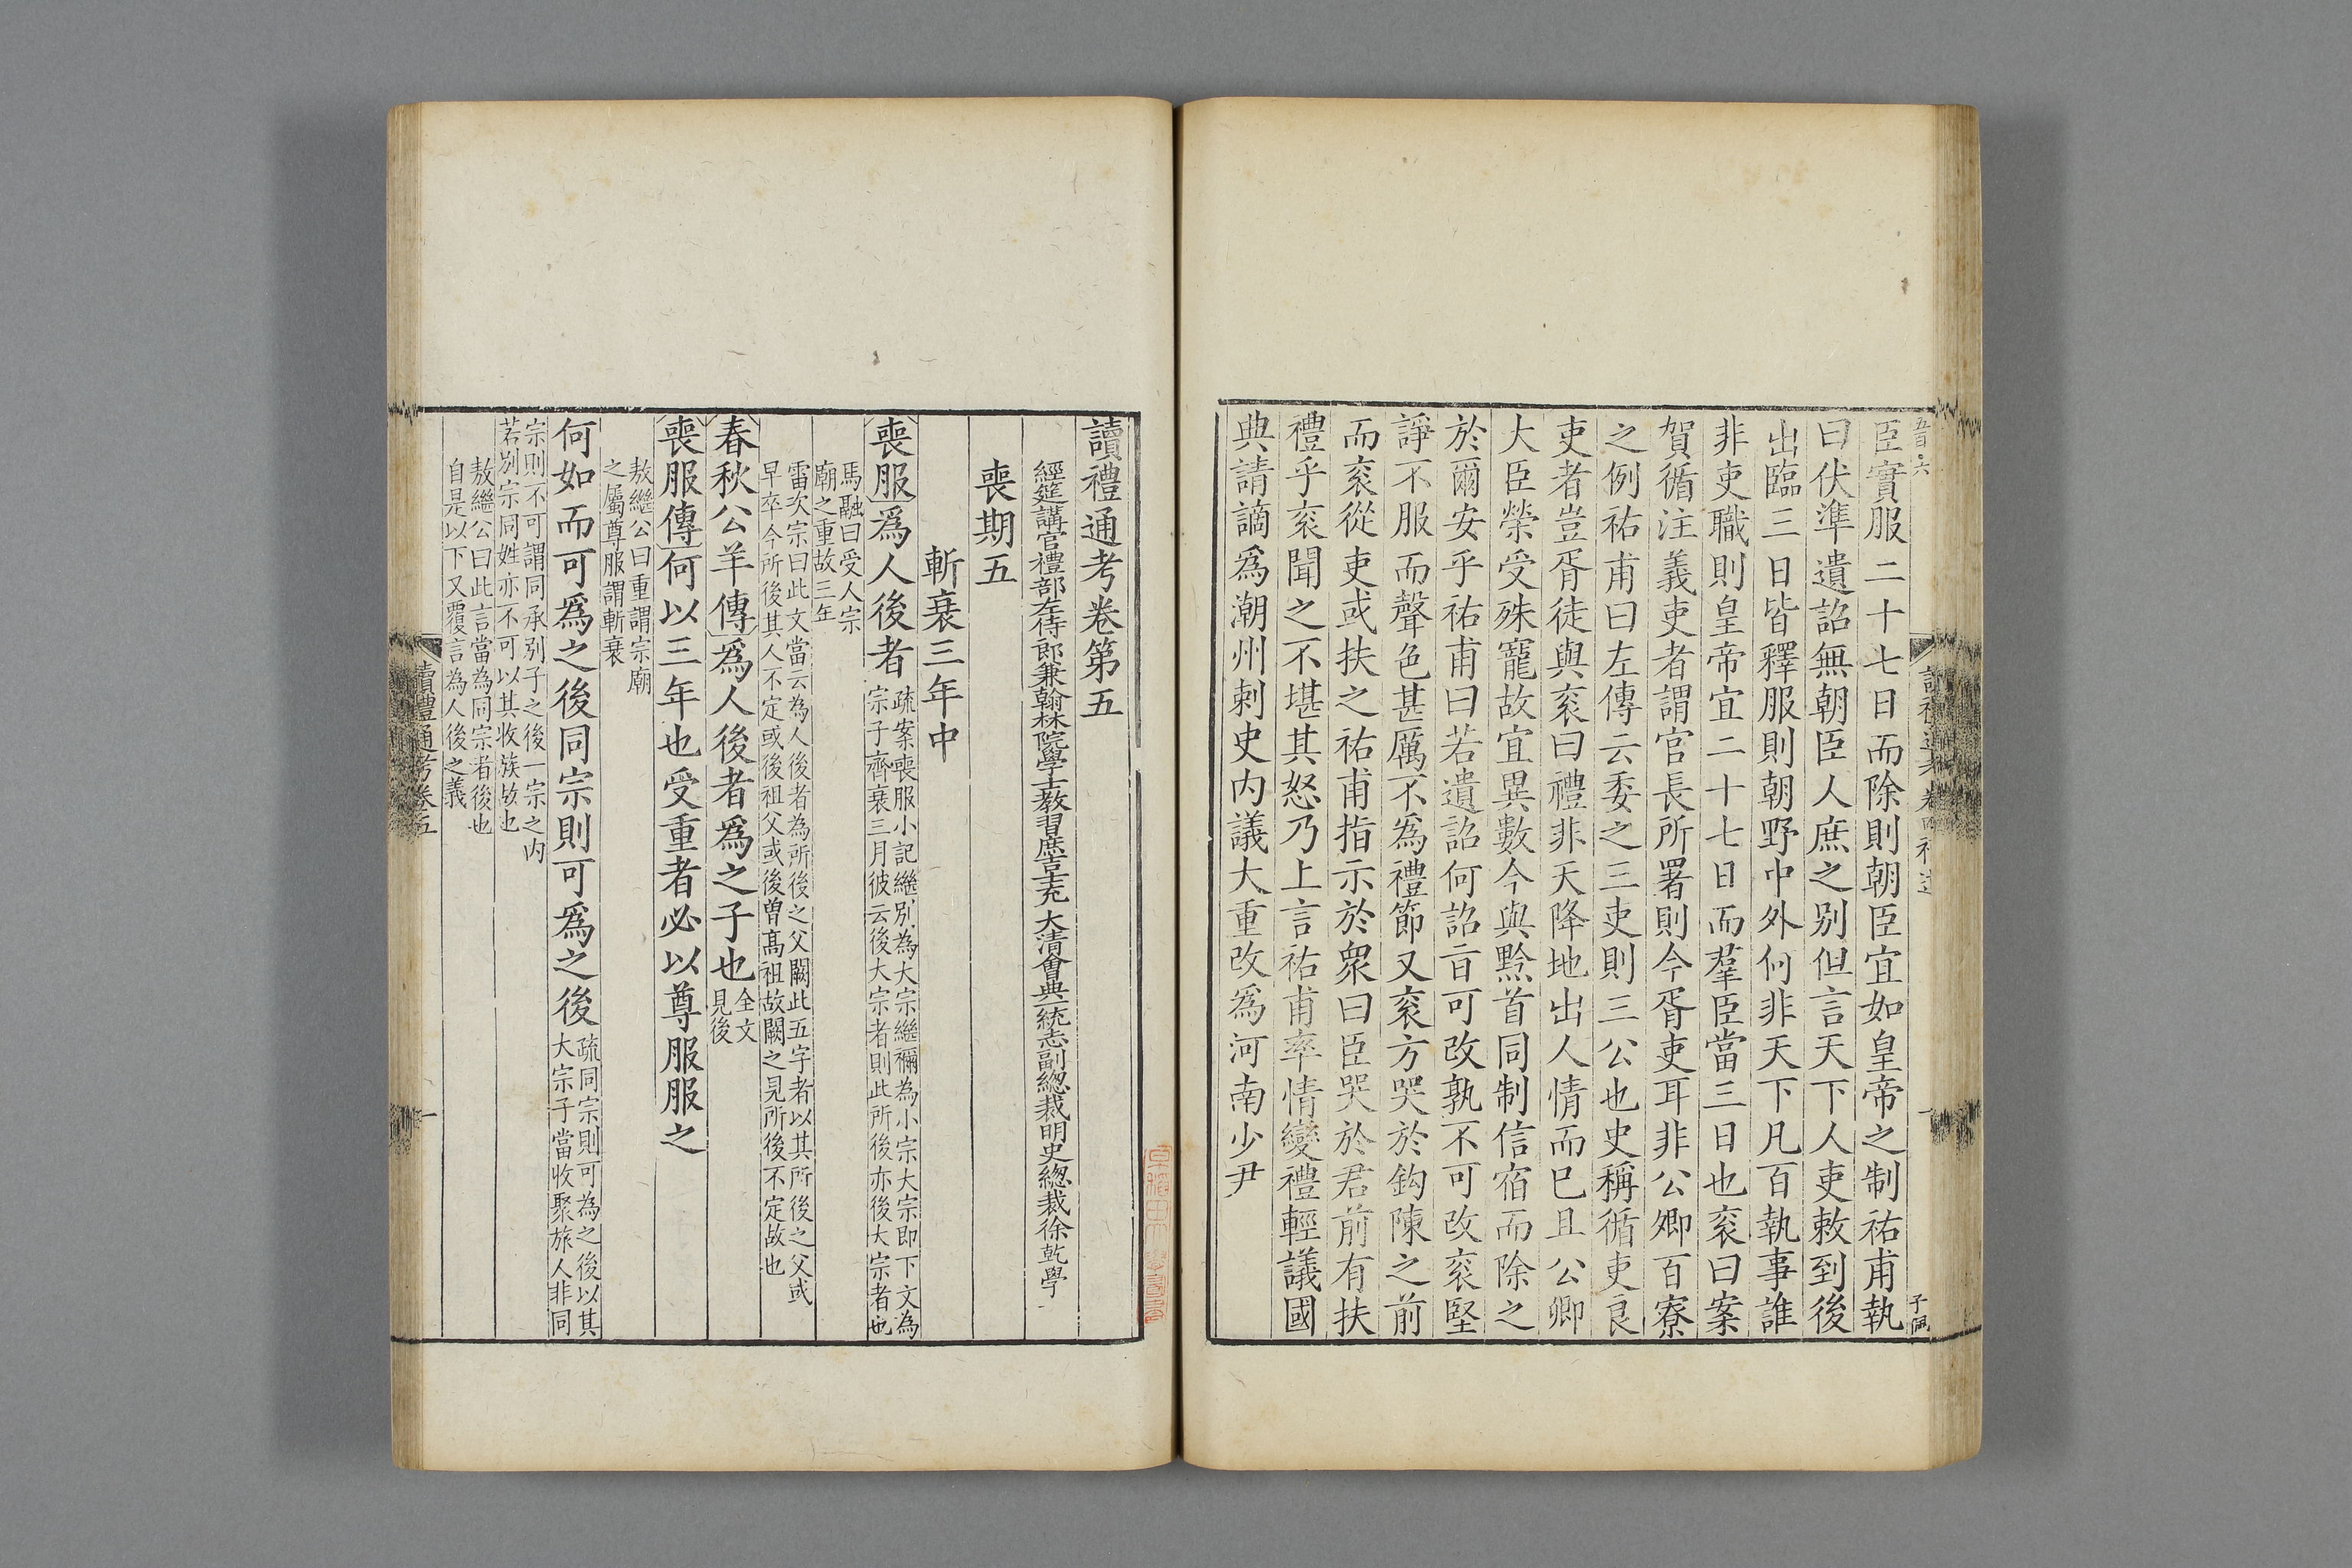 臣實服二十七日而除則朝臣宜如皇帝之制祐甫執
曰伏準遺詔無朝臣人庶之别但言天下人吏敕到後
出臨三日皆釋服則朝野中外何非天下凡百執事誰
非吏職則皇帝宜二十七日而羣臣當三日也衮曰案
賀循注義吏者謂官長所署則今胥吏耳非公卿百寮
之例祐甫曰左傳云委之三吏則三公也史稱循吏良
吏者豈胥徒與衮曰禮非天降地出人情而已且公卿
大臣榮受殊寵故宜異數今與黔首同制信宿而除之
於爾安乎祐甫曰若遺詔何詔旨可改孰不可改衮堅
諍不服而聲色甚厲不爲禮節又衮方哭於鈎陳之前
而衮從吏或扶之祐甫指示於衆曰臣哭於君前有扶
禮乎衮聞之不堪其怒乃上言祐甫率情變禮輕議國
典請謫爲潮州刺史内議大重改爲河南少尹
子佩
讀禮通考卷第五
經筵講官禮部左侍郎兼翰林院學士教習庶吉士充 大清會典一統志副總裁明史總裁徐乾學
喪期五
斬衰三年中
喪服爲人後者
疏案喪服小記繼别為大宗繼禰為小宗大宗即下文為
宗子齊衰三月彼云後大宗者則此所後亦後大宗者也
馬融曰受人宗
廟之重故三年
雷次宗曰此文當云為人後者為所後之父闕此五字者以其所後之父或
早卒今所後其人不定或後祖父或後曽髙祖故闕之見所後不定故也
春秋公羊傳爲人後者爲之子也
全文
見後
喪服傳何以三年也受重者必以尊服服之
敖繼公曰重謂宗廟
之屬尊服謂斬衰
何如而可爲之後同宗則可爲之後
疏同宗則可為之後以其
大宗子當收聚族人非同
宗則不可謂同承别子之後一宗之内
若别宗同姓亦不可以其收族故也
敖繼公曰此言當為同宗者後也
自是以下又覆言為人後之義
讀禮通考卷五
一